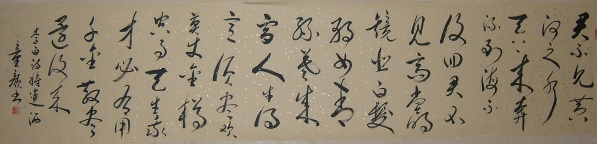 君不見黃
河之水
天上來奔
流到海不
復回君不
見高堂明
鏡悲白髮
朝如青
絲暮成
雪人生得
意須盡歡
莫使金樽
空對月天生我
才必有用
千金散盡
還復來
李白詩將進酒